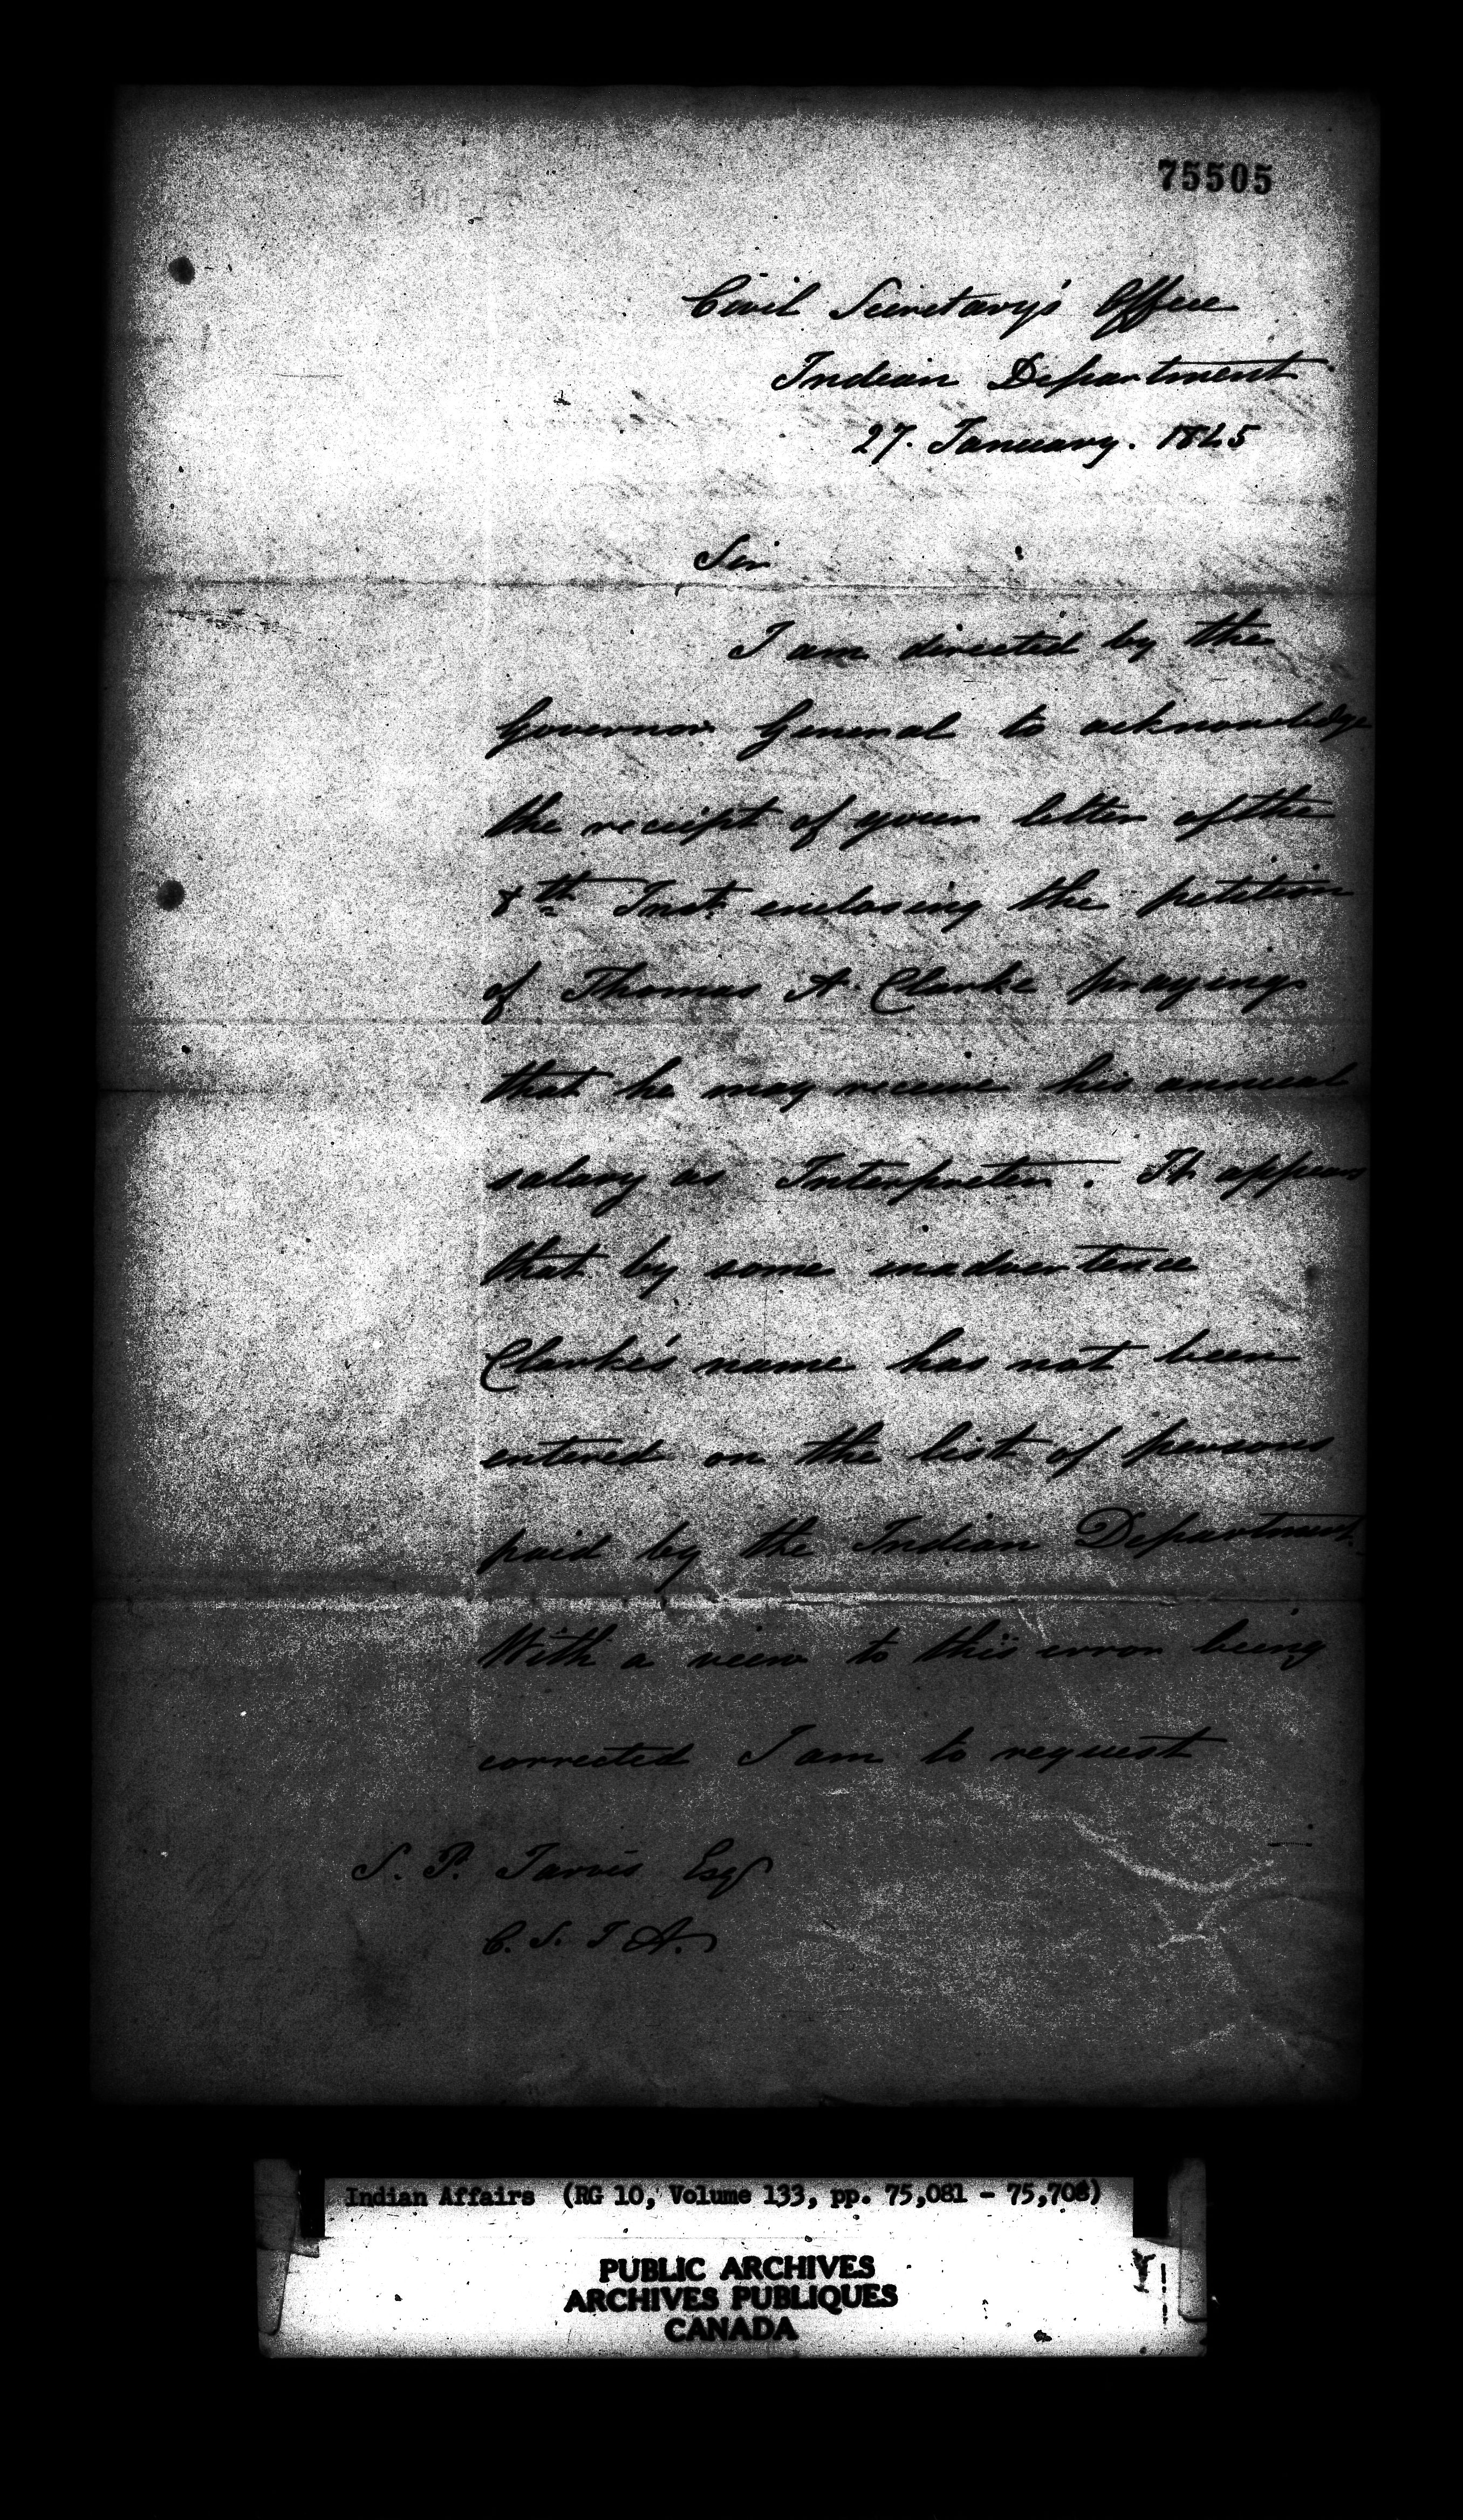 75505
Civil Secretary's Office
Indian Department
27. January. 1845
Sir
I am directed by the
Governor General to acknowledge
the receipt of your letter of the
8th Inst. enclosing the petition
of Thomas A. Clarke praying
that he may receive his annual
salary as Interpreter. It appears
that by some inadvertence
Clarke's name has not been
entered on the list of persons
paid by the Indian Department.
With a view to this error being
corrected I am to request
S. P. Jarvis Esq
C. S. I A.
Indian Affairs (RG 10, Volume 133, pp. 75,081 - 75,708)
PUBLIC ARCHIVES
ARCHIVES PUBLIQUES
CANADA